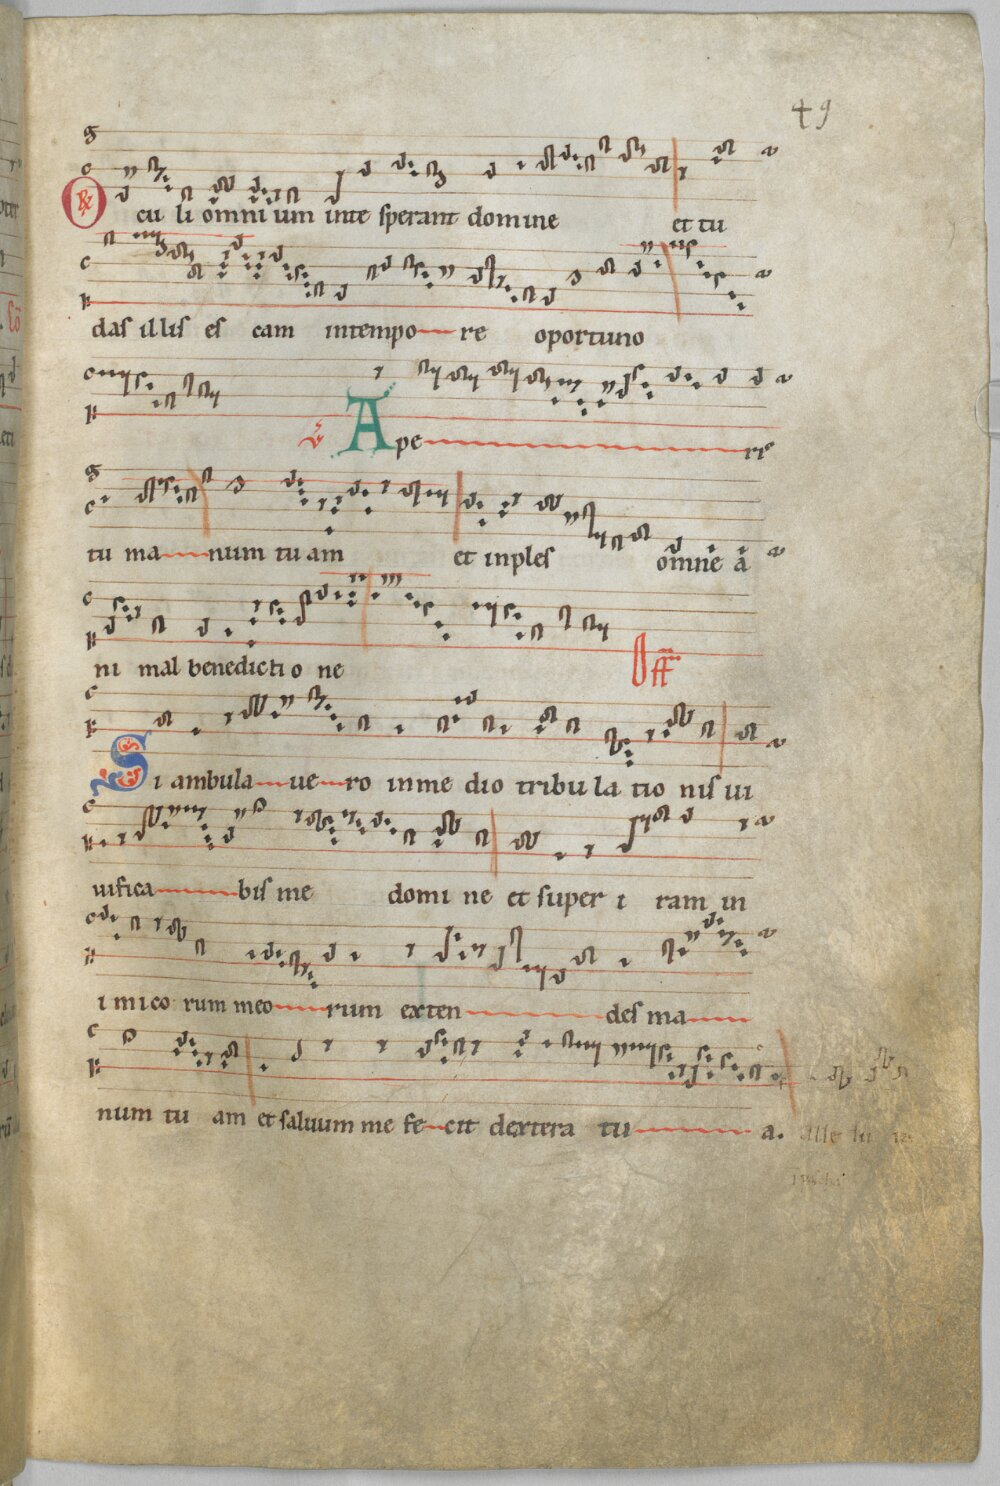 49
Oculi omnium inte sperant domine et tu
das illis es cam intempo re oportuno
Ape ri
tu ma num tu am et inples omne a
ni mal benedicti o ne Off
Si ambula ue ro inme dio tribu la tio nis ui
uifica bis me domi ne et super i ram in
i mi co rum meo rum exten des ma
num tu am et saluum me fe cit dextera tu a. alle lu ia